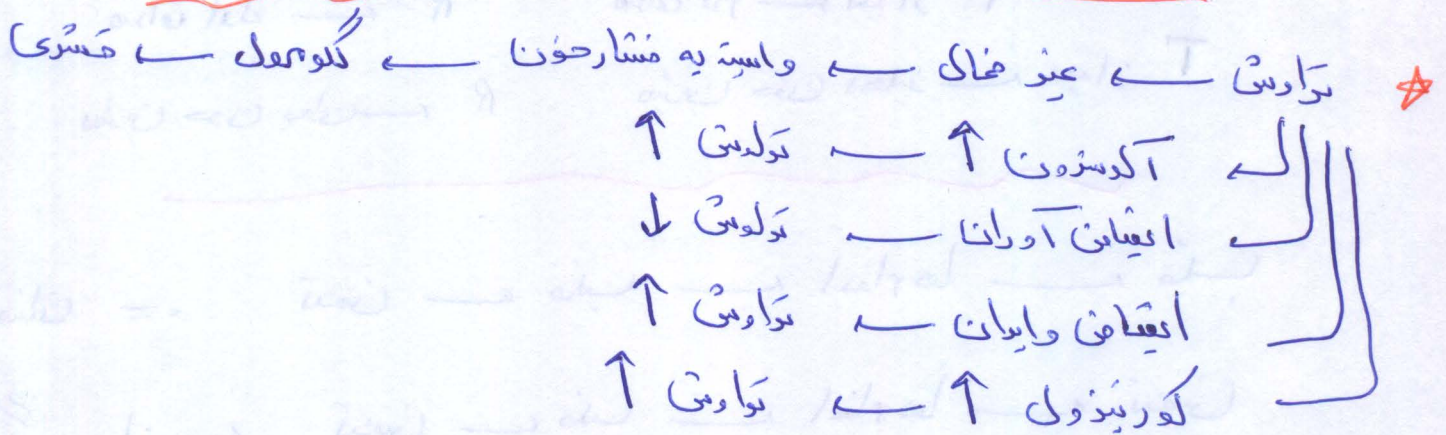 ☆ تراوش ← غیر فعال ← وابسته به فشار خون ← گلومرول ← قشری
← آلدسترون ↑ ← تراوش ↑
← انقباض آوران ← تراوش ↓
انقباض وابران ← تراوش ↑
کورتیزول ↑ ← تراوش ↑